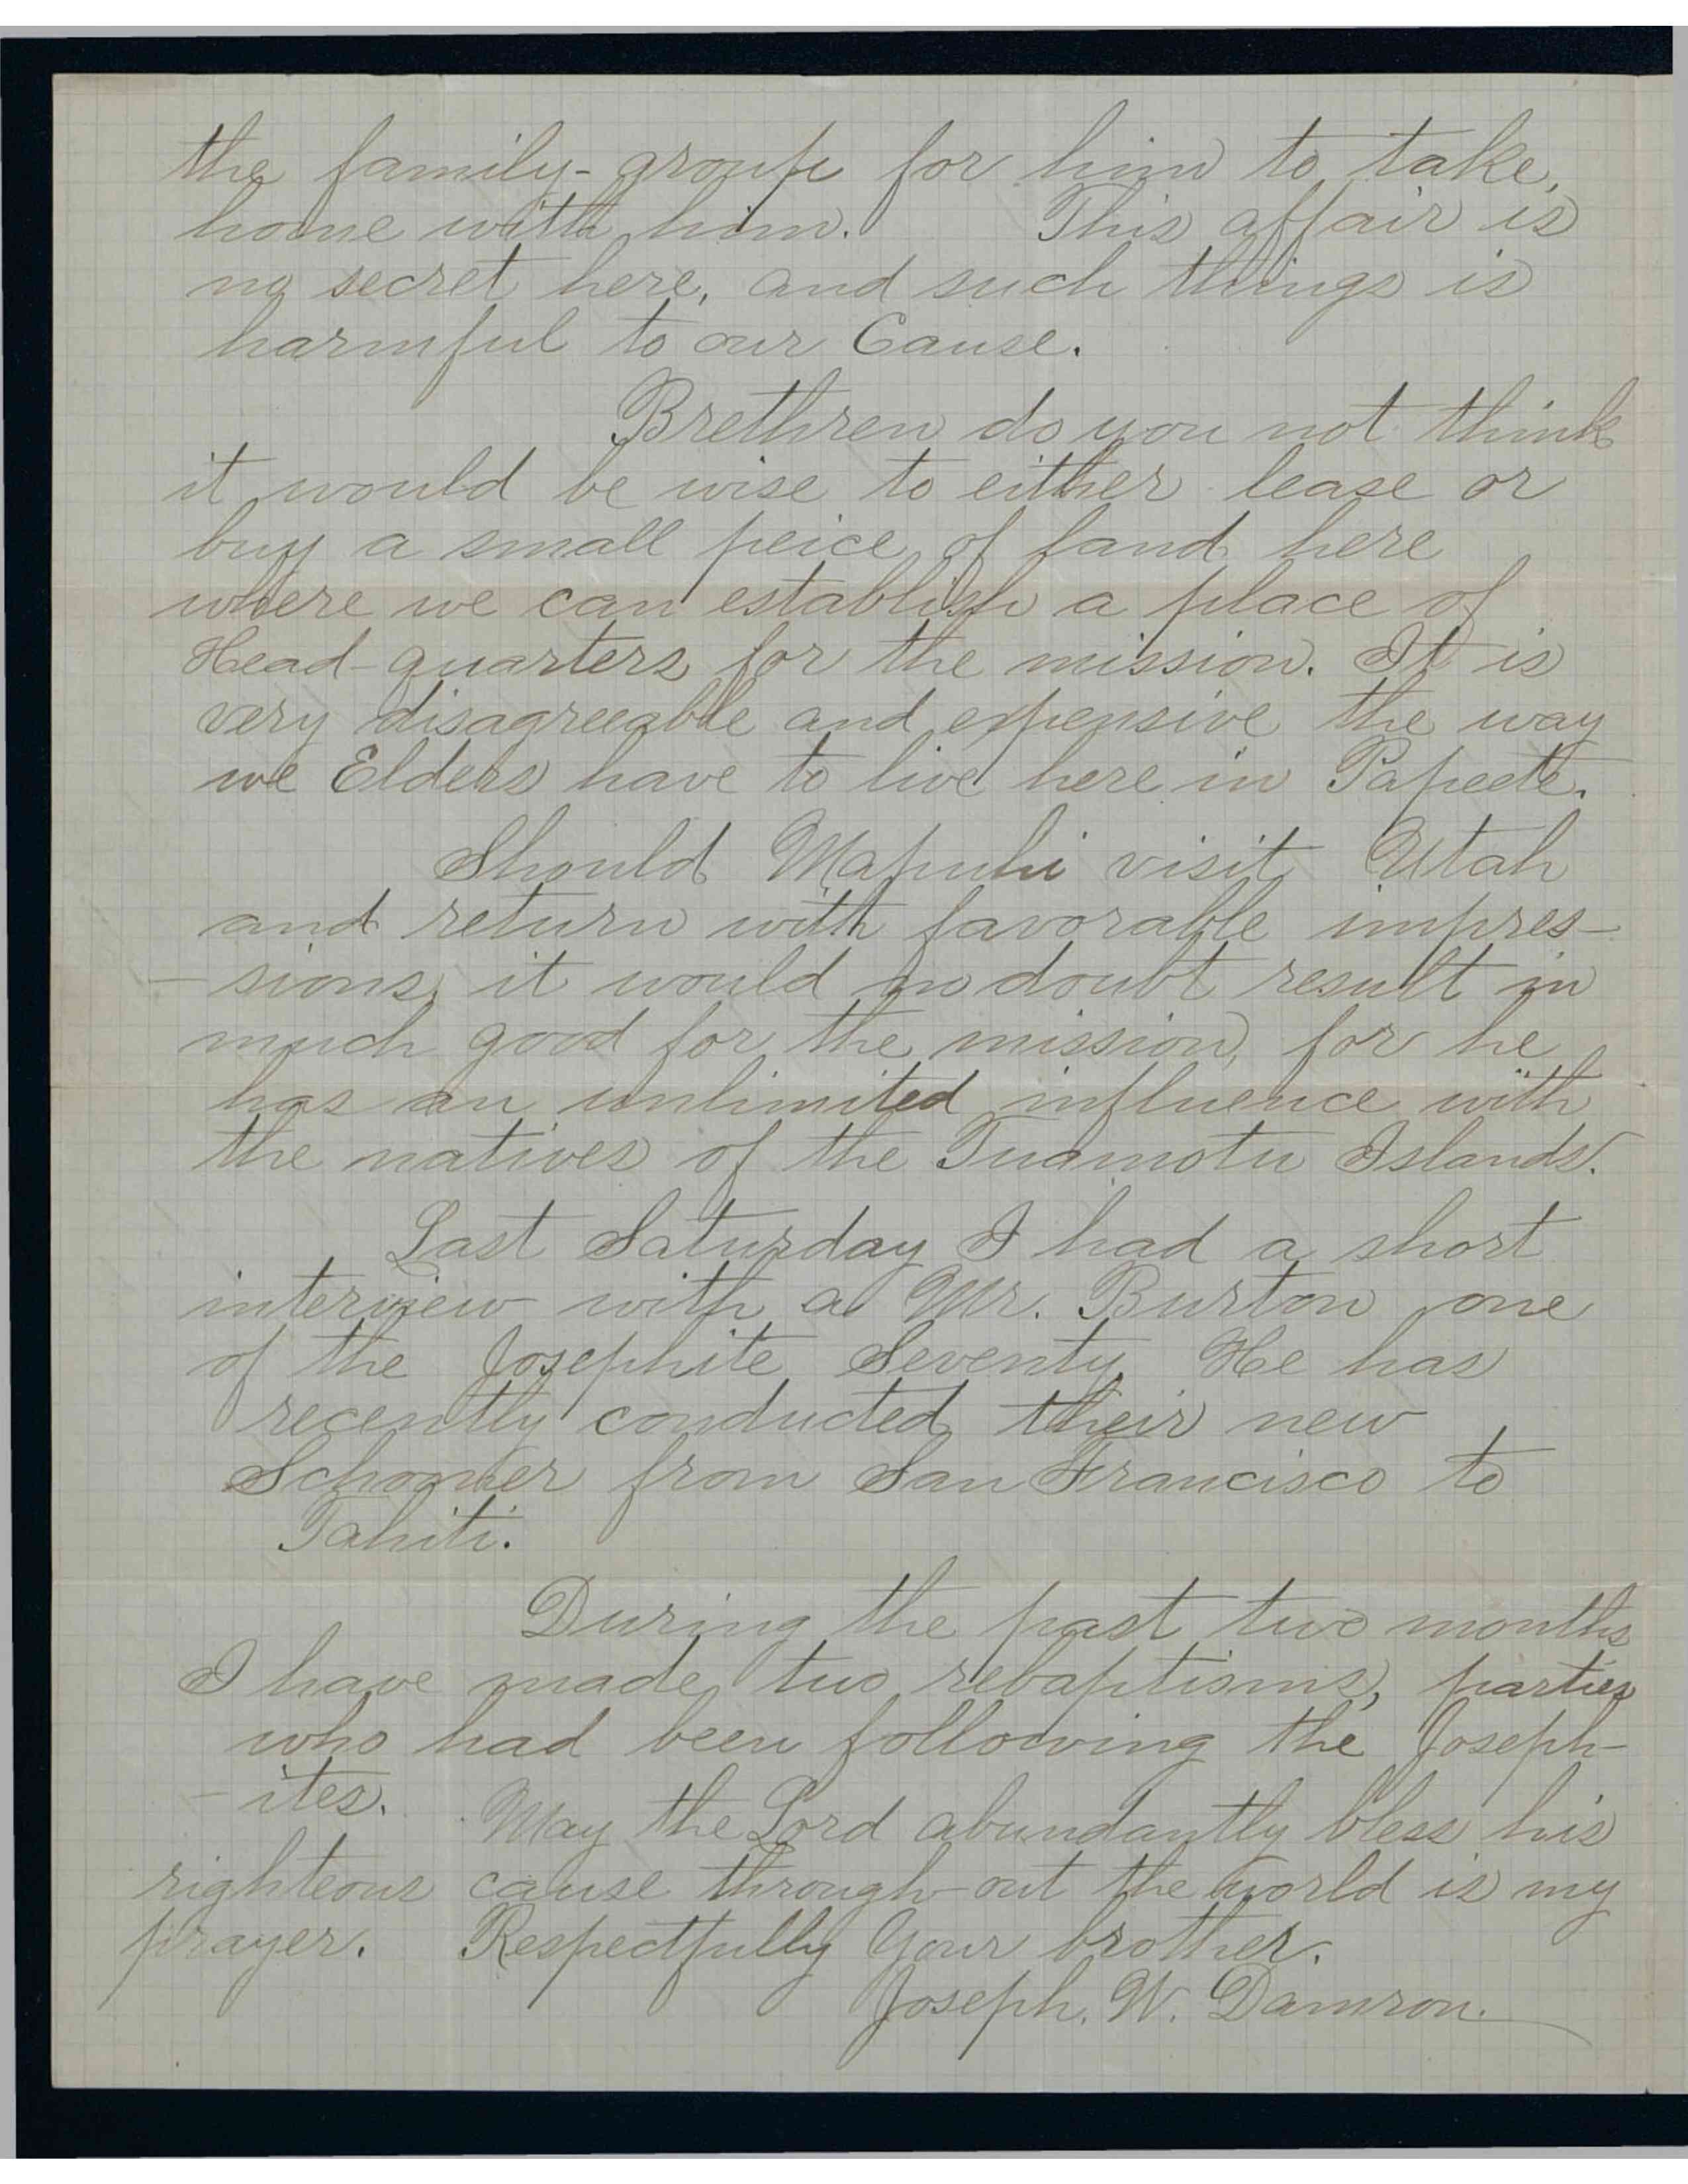 the family-group for him to take,
home with him. This affair is
no secret here, and such things is
harmful to our Cause.
Brethren do you not think
it would be wise to either lease or
buy a small peice of land here
where we can establish a place of
Head-quarters for the mission. It is
very disagreeable and expensive the way
we Elders have to live here in Papeete.
Should Mapuhi visit Utah
and return with favorable impres-
-sions, it would no doubt result in
much good for the mission, for he
has an unlimited influence with
the natives of the Tuamotu Islands.
Last Saturday I had a short
interview with a Mr. Burton one
of the Josephite Seventy. He has
recently conducted their new
Schooner from San Francisco to
Tahiti.
During the past two months
I have made two rebaptisms, parties
who had been following the Joseph-
-ites. May the Lord abundantly bless his
righteous cause through-out the world is my
prayer. Respectfully Your brother.
Joseph. W. Damron.